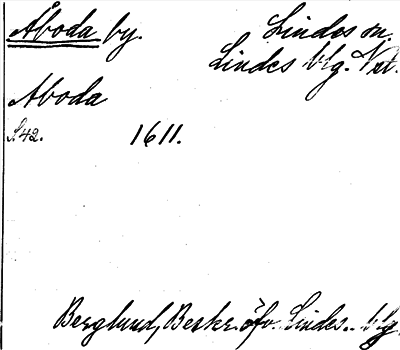 Åboda by.
Lindes sn.
Lindes blg. Vstm.
Aboda
S. 42. 1611.
Berglund, Beskr. öfv. Lindes.. blg.